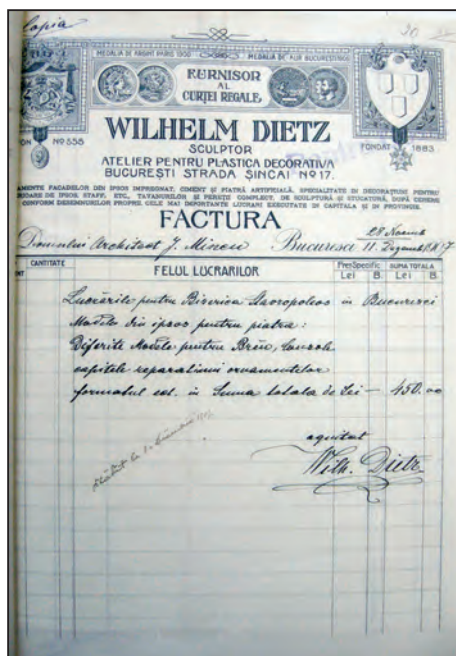 Copia
MEDALIA DE ARGINT PARIS 1900 MEDALIA DE AUR BUCURESTI 1906
FURNISOR
AL
CURȚEI REGALE
WILHELM DIETZ
FON No 558 SCULPTOR FONDAT 1883
ATELIER PENTRU PLASTICA DECORATIVA
BUCUREȘTI STRADA ȘINCAI No 17.
AMENTE FACADELOR DIN IPSOS IMPREGNAT, CIMENT ȘI PIATRĂ ARTIFICIALĂ, SPECIALITATE IN DECORAȚIUNI PENTRU
DE IPSOS, STAFF, ETC, TAVANURILOR ȘI PEREȚII COMPLECT, DE SCULPTURĂ ȘI STUCATURĂ, DUPĂ CERERE
CONFORM DESEMNURILOR PROPRII, CELE MAI IMPORTANTE LUCRĂRI EXECUTATE IN CAPITALA ȘI IN PROVINCIE.
FACTURA
28 Noemb
Domnului Architect J. Mincu București 11. Dezemb
CANTITATE FELUL LUCRARILOR Preț Specific SUMA TOTALA
Lei B Lei B
Lucrările pentru Biserica Stavropoleos in București
Modele din ipsos pentru piatra:
Diferite Modele pentru Brîu, Console
capitele reparatiunii ornamentelor
formatul est. in Suma totala de Lei — 450.00
aquitat
Wilh. Dietz